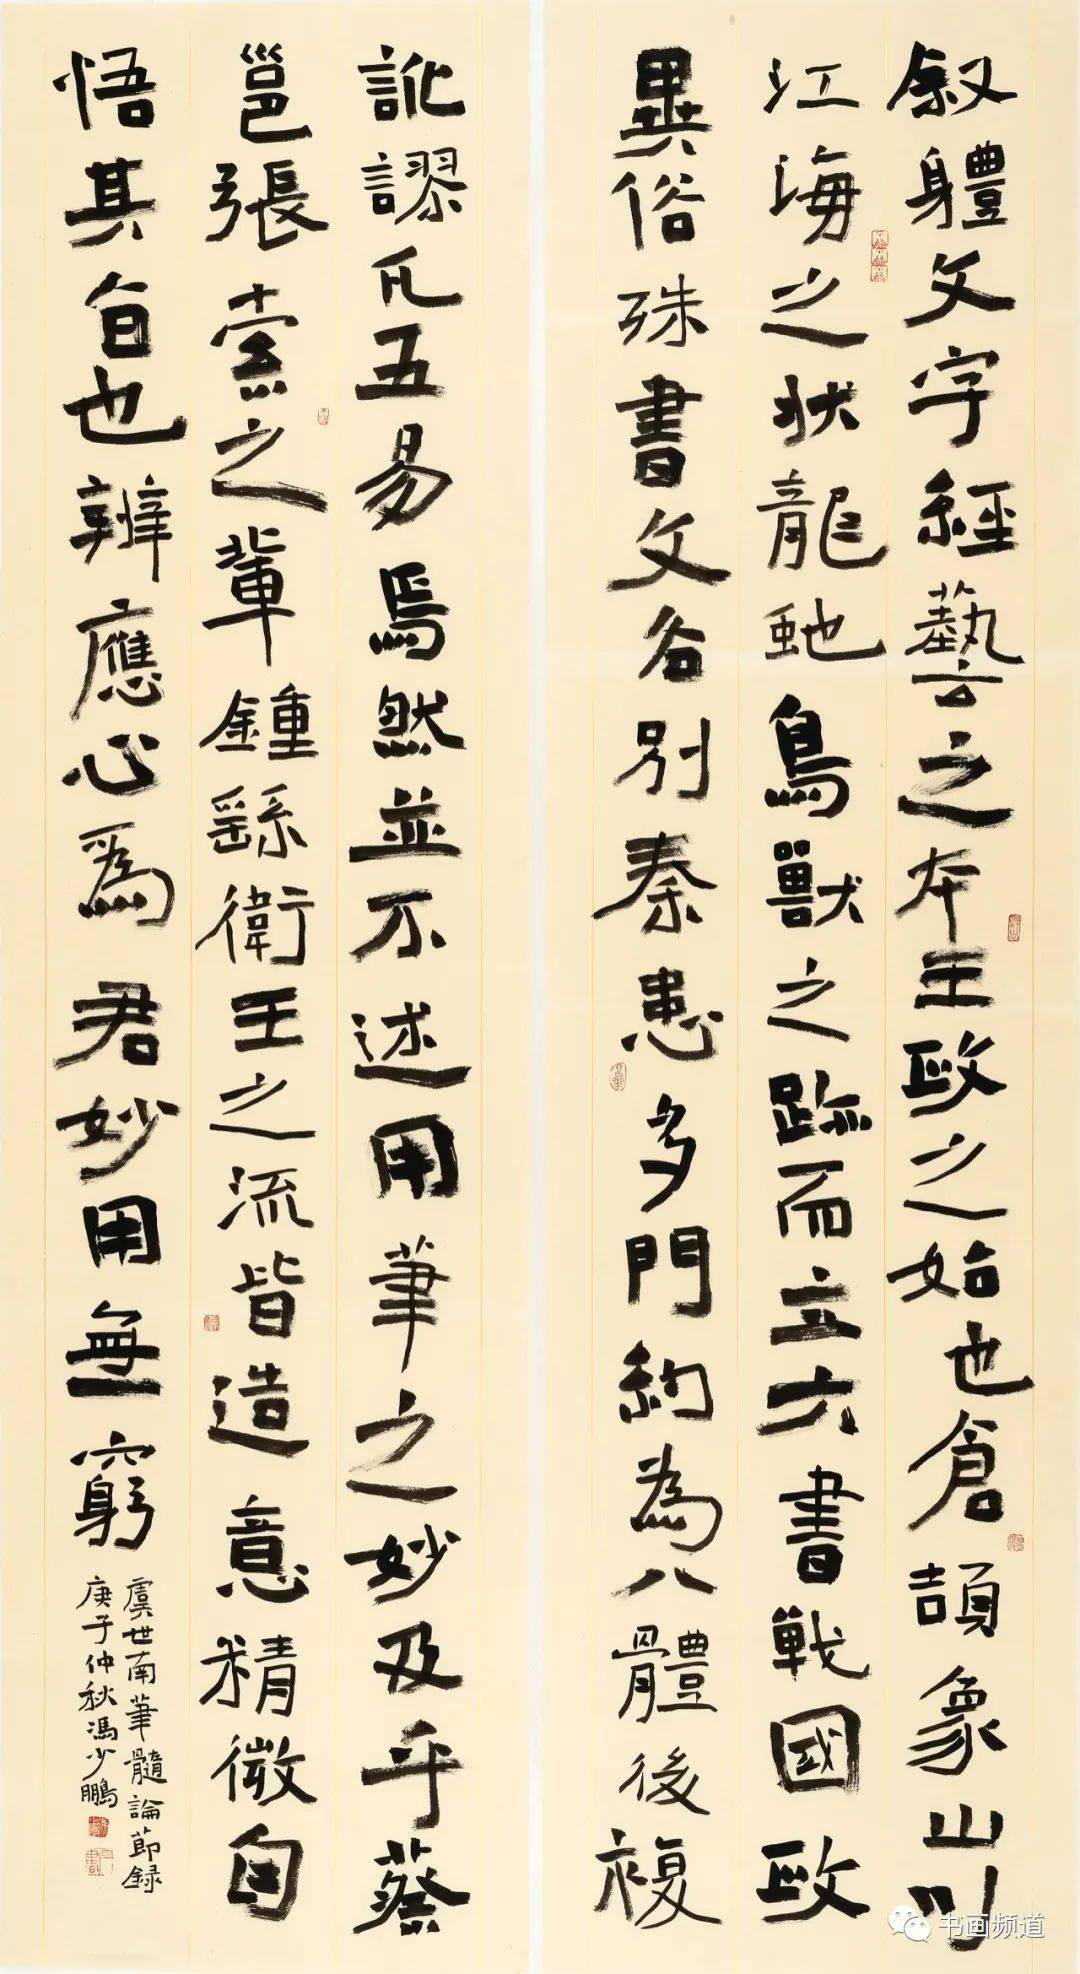 叙體文字經藝之本王政之始也倉頡象山川
江海之狀龍虵鳥獸之跡而立六書戰國政
異俗殊書文各別秦患多門約為八體後複
訛謬凡五易焉然並不述用筆之妙及乎蔡
邕張索之輩鍾繇衛王之流皆造意精微自
悟其旨也辨應心為君妙用無窮
虞世南筆髓論節録
庚子仲秋馮少鵬
书画频道